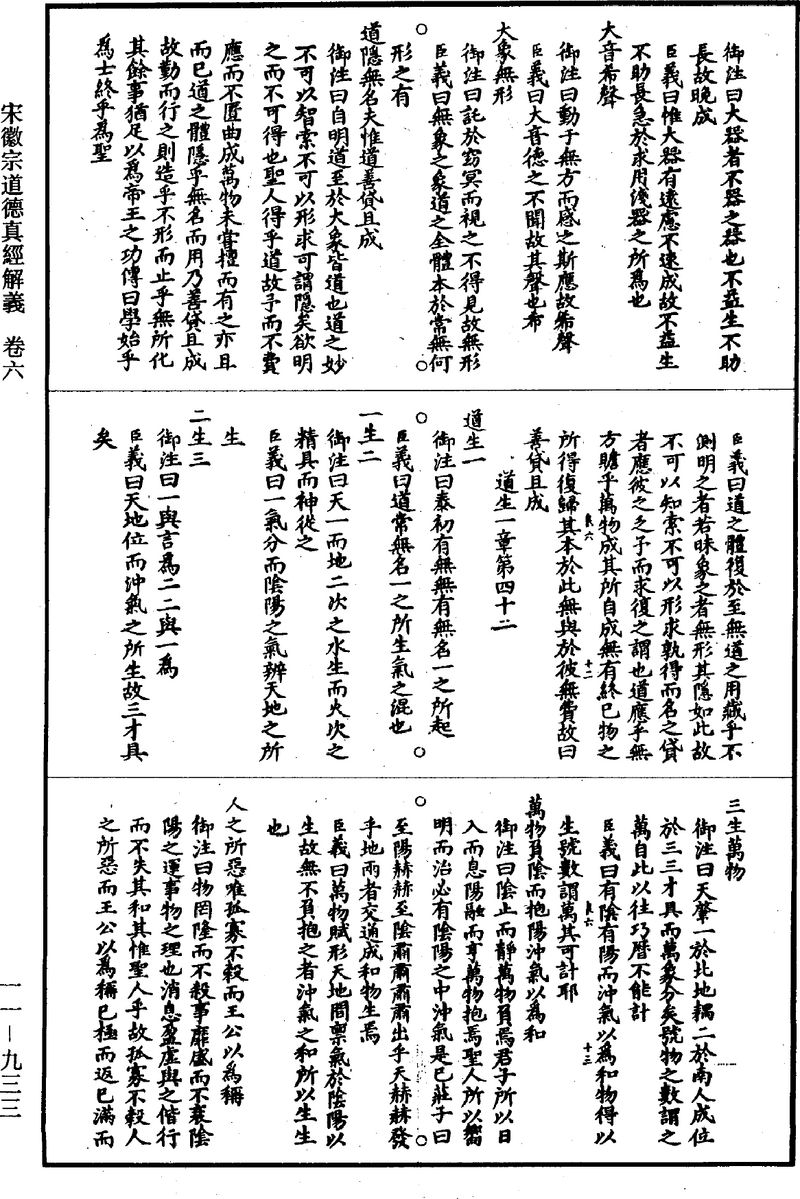 宋徽宗道德真經解義　卷六
一一—九三三
御注曰大器者不器之器也不益生不助
長故晚成
臣義曰惟大器有遠慮不速成故不益生
不助長急於求用淺器之所為也
大音希聲
御注曰動于無方而感之斯應故希聲
臣義曰大音德之不聞故其聲也希
大象無形
御注曰託於窈冥而視之不得見故無形
臣義曰無象之象道之全體本於常無何
形之有
道隱無名夫惟道善貸且成
御注曰自明道至於大象皆道也道之妙
不可以智索不可以形求可謂隱矣欲明
之而不可得也聖人得乎道故予而不費
應而不匱曲成萬物未嘗擅而有之亦且
而已道之體隱乎無名而用乃善貸且成
故勤而行之則造乎不形而止乎無所化
其餘事猶足以為帝王之功傳曰學始乎
為士終乎為聖
臣義曰道之體復於至無道之用藏乎不
測明之者若昧象之者無形其隱如此故
不可以知索不可以形求孰得而名之貸
者應彼之乏予而求復之謂也道應乎無
方贍乎萬物成其所自成無有終已物之
所得復歸其本於此無與於彼無費故曰
善貸且成
道生一章第四十二
道生一
御注曰泰初有無無有無名一之所起
臣義曰道常無名一之所生氣之混也
一生二
御注曰天一而地二次之水生而火次之
精具而神從之
臣義曰一氣分而陰陽之氣辨天地之所
生
二生三
御注曰一與言為二二與一為
臣義曰天地位而沖氣之所生故三才具
矣
三生萬物
御注曰天肇一於北地耦二於南人成位
於三三才具而萬象分矣號物之數謂之
萬自此以往巧曆不能計
臣義曰有陰有陽而沖氣以為和物得以
生號數謂萬其可計耶
萬物負陰而抱陽沖氣以為和
御注曰陰止而靜萬物負焉君子所以日
入而息陽融而亨萬物抱焉聖人所以嚮
明而治必有陰陽之中沖氣是已莊子曰
至陽赫赫至陰肅肅肅肅出乎天赫赫發
乎地兩者交通成和物生焉
臣義曰萬物賦形天地間稟氣於陰陽以
生故無不負抱之者沖氣之和所以生生
也
人之所惡唯孤寡不穀而王公以為稱
御注曰物罔隆而不殺事靡盛而不衰陰
陽之運事物之理也消息盈虛與之偕行
而不失其和其惟聖人乎故孤寡不穀人
之所惡而王公以為稱已極而返已滿而